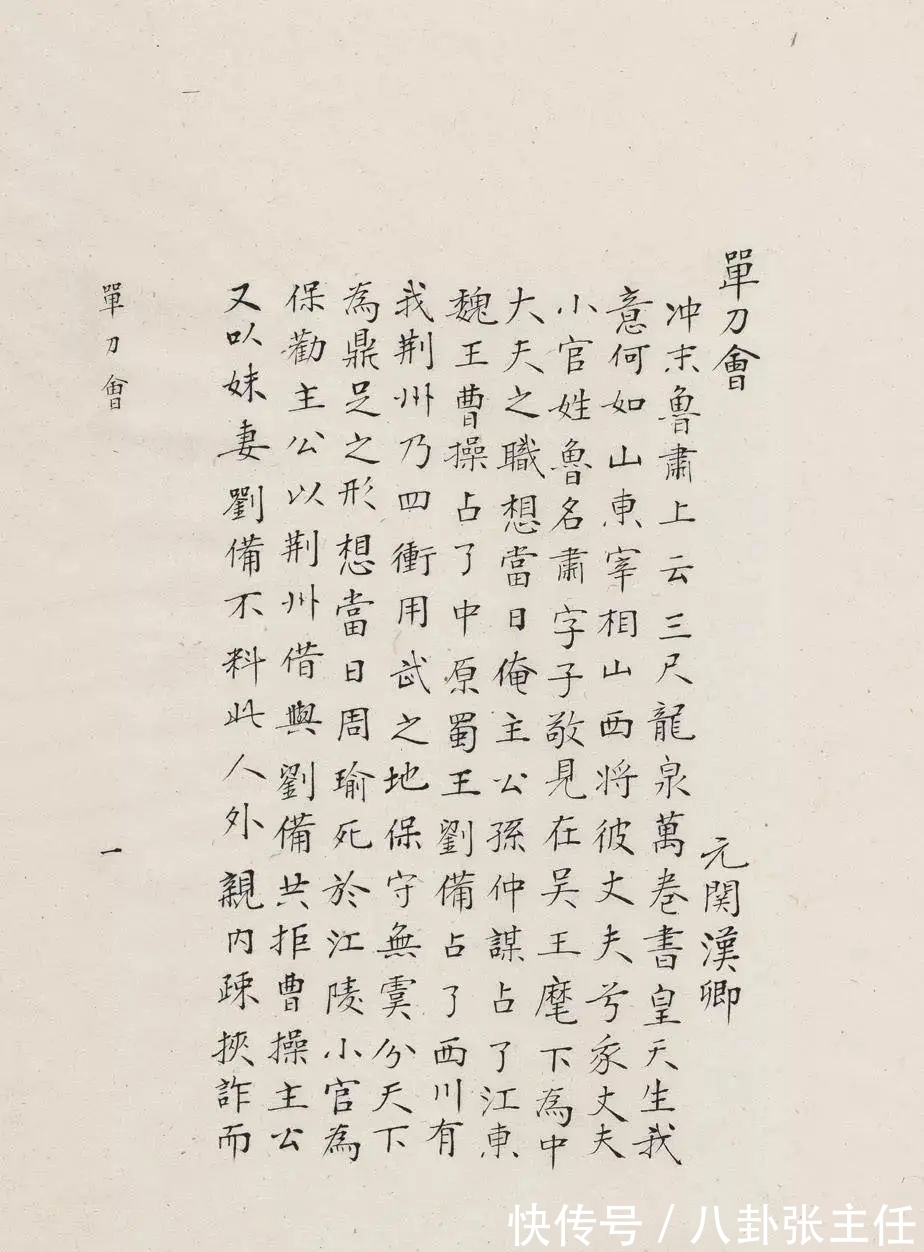 單刀會
元関漢卿
冲末魯肅上云三尺龍泉萬卷書皇天生我
意何如山東宰相山西將彼丈夫兮我丈夫
小官姓魯名肅字子敬見在吴王麾下為中
大夫之職想當日俺主公孫仲謀占了江東
魏王曹操占了中原蜀王劉備占了西川有
我荆州乃四衝用武之地保守無虞分天下
為鼎足之形想當日周瑜死於江陵小官為
保勸主公以荆州借與劉備共拒曹操主公
又以妹妻劉備不料此人外親内疎挾詐而
單刀會
一
快传号/八卦张主任